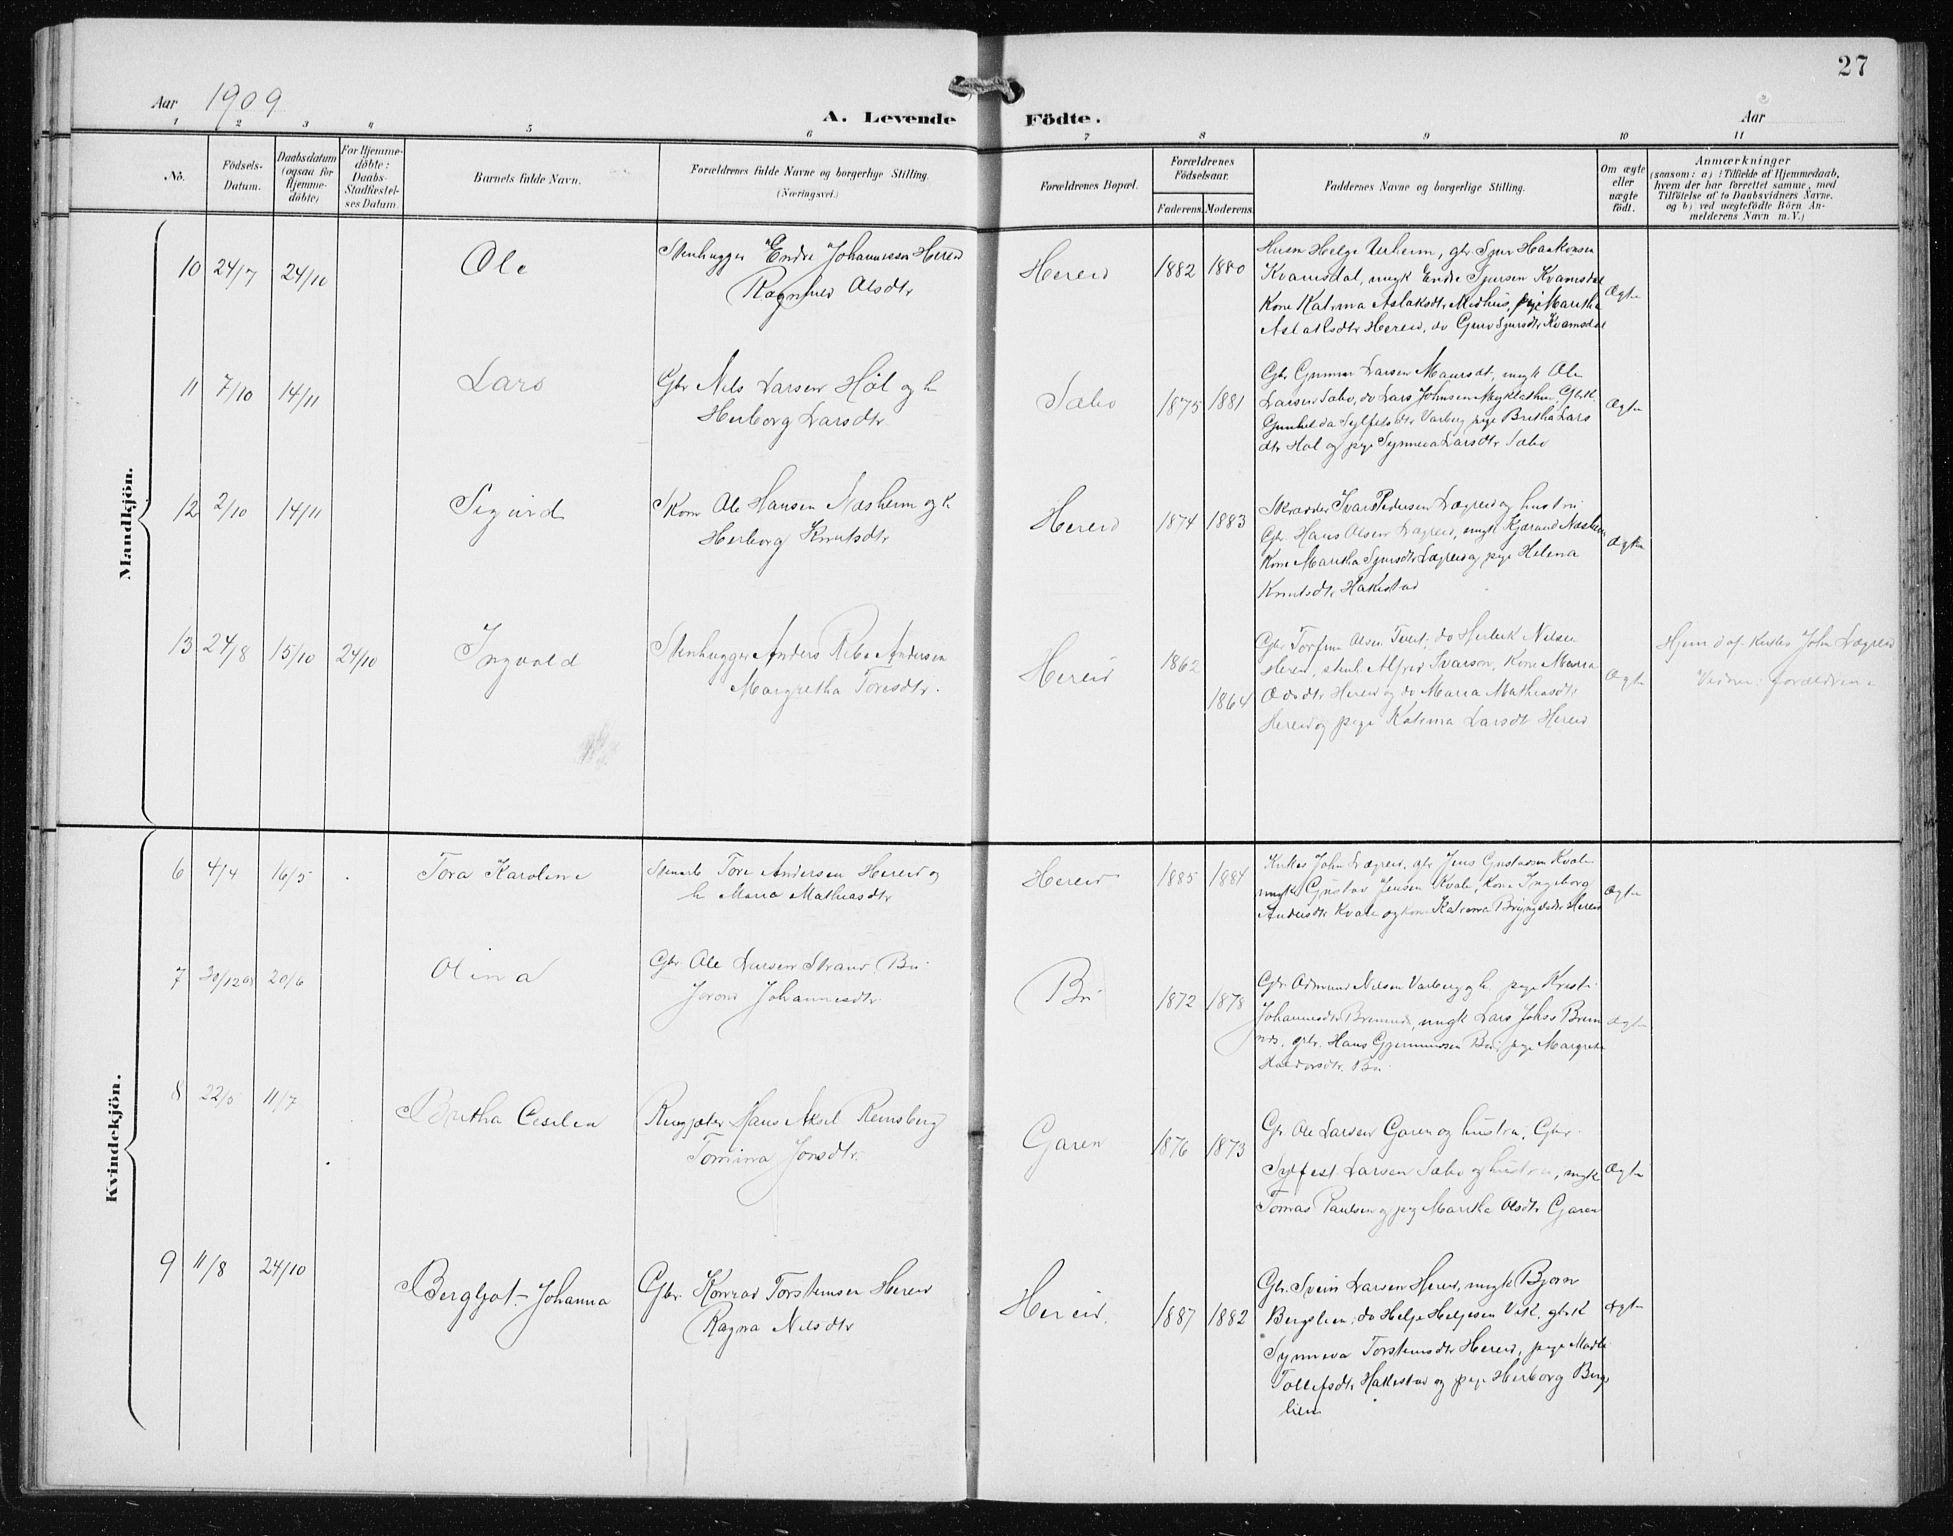 27
Aar 1909
A. Levende Födte.
Aar
1 2 3 4 5 6 7 8 9 10 11
No.
Födsels-
Datum.
Daabsdatum
(ogsaa for
Hjemme-
döbte)
For Hjemme-
döbte:
Daabs-
Stadfæstel-
ses Datum.
Barnets fulde Navn.
Forældrenes fulde Navne og borgerlige Stilling.
(Næringsvei.)
Forældrenes Bopæl.
Forældrenes
Födselsaar.
Faderens. Moderens.
Faddernes Navne og borgerlige Stilling.
Om ægte
eller
uægte
födt.
Anmærkninger
(saasom: a) i Tilfælde af Hjemmedaab,
hvem der har forrettet samme, med
Tilföielse af to Daabsvidners Navne,
og b) ved uægtefödte Börn An-
melderens Navn m. V.)
Mandkjön.
10 24/7 24/10 Ole
Stenhugger Endre Johannessen Hereid
Ragnhild Olsdtr
Hereid 1882 1880
Husm Helge Urheim, gbr Sjur Haakonsen
Kvamsdal, ungk Endre Sjursen Kvamsdal
Kone Katrina Aslaksdtr Midhus, pige Maritha
Aslaksdtr Hereid, do Guro Sjursdtr Kvamsdal
Ægte
11 7/10 14/11 Lars
Gbr Nils Larsen Høl og h
Herborg Larsdtr
Sæbo 1875 1881
Gbr Gunnar Larsen Maursdt, ungk Ole
Larsen Sæbo, do Lars Johnsen Myklathun, Gbrk
Gunhilda Sylfestdtr Varberg pige Britha Lars
dtr Høl og pige Synneva Larsdtr Sæbo
Ægte
12 2/10 14/11 Sigurd
Skom Ole Hansen Næsheim og h
Herborg Knutsdtr
Hereid 1874 1883
Skrædder Ivar Pedersen Lægreid og hustru
Gbr. Hans Olsen Lægreid, ungk Kjærand Næsheim
Kone Maritha Sjursdtr Lægreid og pige Helena
Knutsdtr Hakestad
Ægte
13 24/8 15/10 24/10 Ingvald
Stenhugger Anders Ribe Andersen
Margretha Toresdtr.
Hereid 1862 1864
Gbr Torfinn Olsen Tveit, do Herlerk Nilsen
Hereid, stenh Alfred Ivarson, Kone Maria
Odsdtr Hereid og do Maria Mathiasdtr
Hereid og pige Katrina Larsdt Hereid
Ægte
Hjemd af Kirkes John Lægreid
Vidner: forældrene
Kvindekjön.
6 4/4 16/5 Tora Karoline
Stenarb Tore Andersen Hereid og
h Maria Mathiasdtr
Hereid 1885 1884
Kirkes John Lægreid, gbr Jens Gustavsen Kvale
ungk Gustav Jensen Kvale, Kone Ingeborg
Andersdtr Kvale og kone Katrina Brynjelsdtr Hereid
Ægte
7 30/12 08 20/6 Olina
Gbr. Ole Larsen Strand, Bu
Jorond Johannesdtr
Bu 1872 1878
Gbr Odmund Nilsen Varberg og h. pige Kristi
Johannesdtr Bremnes, ungk Lars Johs Brem
nes, gbr. Hans Gjermundsen Bu, pige Margrete
Haldorsdtr. Bu
Ægte
8 22/5 11/7 Britha Cesilea
Ringjeter Hans Aksel Remsberg
Tomina Jonsdtr.
Garen 1876 1873
Gbr Ole Larsen Garen og hustru, Gbr.
Sylfest Larsen Sæbo og hustru, ungk
Tomas Paulsen og pig Maritha Olsdtr Garen
Ægte
9 11/8 24/10 Bergljot Johanna
Gbr. Konrad Torsteinsen Hereid
Ragna Nilsdtr
Hereid. 1887 1882
Gbr. Svein Larsen Hereid, ungk Bjørn
Bergslien, do Helge Helgesen Vik, gbrk
Synneva Torsteinsdtr Hereid, pige Madli
Tollefsdtr Hakestad og pige Herborg Berg
lien
Ægte